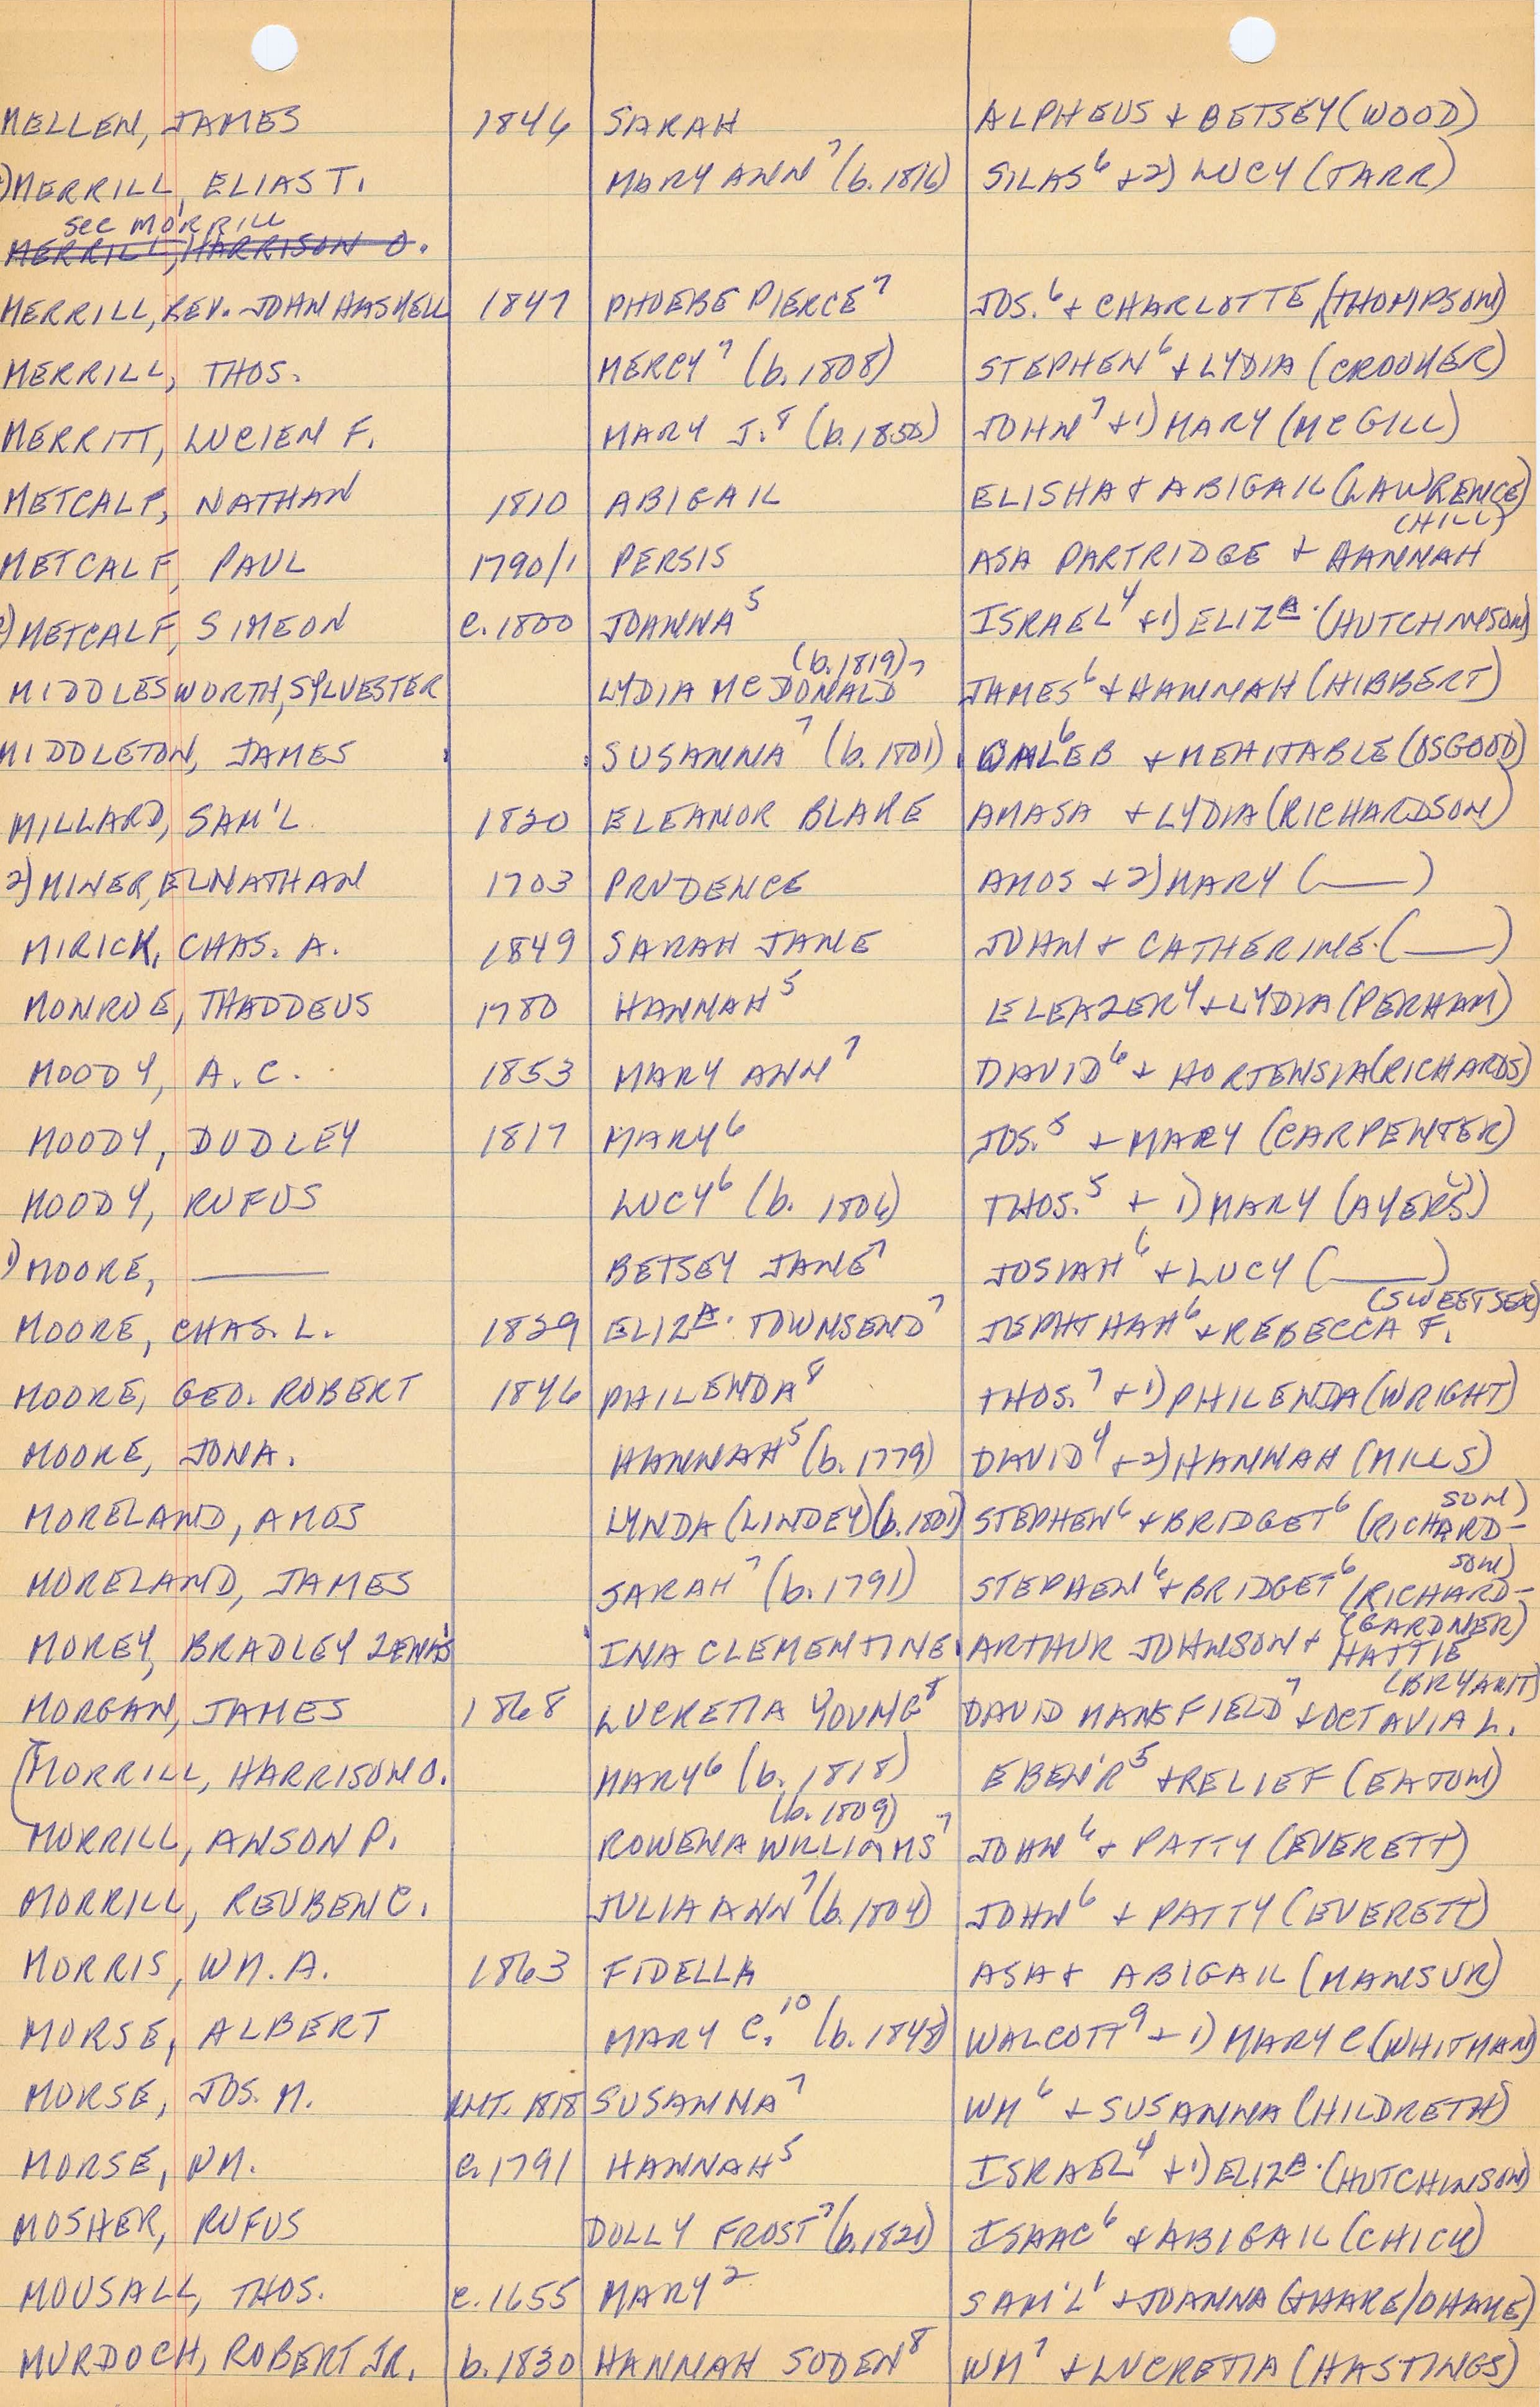 MELLEN, JAMES 1846 SARAH ALPHEUS + BETSEY (WOOD)
2) MERRILL, ELIAS T. MARY ANN⁷ (b. 1816) SILAS⁶ + 2) LUCY (TARR)
see MORRILL
MERRILL, HARRISON O.
MERRILL, REV. JOHN HASKELL 1847 PHOEBE PIERCE⁷ JOS.⁶ + CHARLOTTE (THOMPSON)
MERRILL, THOS. MERCY⁷ (b. 1808) STEPHEN⁶ + LYDIA (CROOKER)
MERRITT, LUCIEN F. MARY J.⁸ (b. 1850) JOHN⁷ + 1) MARY (McGILL)
METCALF, NATHAN 1810 ABIGAIL ELISHA + ABIGAIL (LAWRENCE)
(HILL)
METCALF, PAUL 1790/1 PERSIS ASA PARTRIDGE + HANNAH
2) METCALF, SIMEON c. 1800 JOANNA⁵ ISRAEL⁴ + 1) ELIZA. (HUTCHINSON)
(b. 1819)
MIDDLESWORTH, SYLVESTER LYDIA McDONALD⁷ JAMES⁶ + HANNAH (HIBBERT)
MIDDLETON, JAMES SUSANNA⁷ (b. 1801) CALEB⁶ + MEHITABLE (OSGOOD)
MILLARD, SAM'L 1820 ELEANOR BLAKE AMASA + LYDIA (RICHARDSON)
2) MINER, ELNATHAN 1703 PRUDENCE AMOS + 2) MARY (___)
MIRICK, CHAS. A. 1849 SARAH JANE JOHN + CATHERINE (___)
MONROE, THADDEUS 1780 HANNAH⁵ ELEAZER⁴ + LYDIA (PERHAM)
MOODY, A. C. 1853 MARY ANN⁷ DAVID⁶ + HORTENSIA (RICHARDS)
MOODY, DUDLEY 1817 MARY⁶ JOS.⁵ + MARY (CARPENTER)
MOODY, RUFUS LUCY⁶ (b. 1806) THOS.⁵ + 1) MARY (AYER(S))
1) MOORE, ___ BETSEY JANE⁷ JOSIAH⁶ + LUCY (___)
(SWEETSER)
MOORE, CHAS. L. 1839 ELIZA. TOWNSEND⁷ JEPHTHAH⁶ + REBECCA F.
MOORE, GEO. ROBERT 1846 PHILENDA⁸ THOS.⁷ + 1) PHILENDA (WRIGHT)
MOORE, JONA. HANNAH⁵ (b. 1779) DAVID⁴ + 2) HANNAH (MILLS)
SON)
MORELAND, AMOS LYNDA (LINDEY) (b. 1801) STEPHEN⁶ + BRIDGET⁶ (RICHARD-
SON)
MORELAND, JAMES SARAH⁷ (b. 1791) STEPHEN⁶ + BRIDGET⁶ (RICHARD-
(GARDNER)
MOREY, BRADLEY ZENAS INA CLEMENTINE ARTHUR JOHNSON + HATTIE
(BRYANT)
MORGAN, JAMES 1868 LUCRETIA YOUNG⁸ DAVID MANSFIELD⁷ + OCTAVIA L.
MORRILL, HARRISON O. MARY⁶ (b. 1818) EBEN'R⁵ + RELIEF (EATON)
(b. 1809)
MORRILL, ANSON P. ROWENA WILLIAMS⁷ JOHN⁶ + PATTY (EVERETT)
MORRILL, REUBEN C. JULIA ANN⁷ (b. 1804) JOHN⁶ + PATTY (EVERETT)
MORRIS, WM. A. 1863 FIDELLA ASA + ABIGAIL (MANSUR)
MORSE, ALBERT MARY C.¹⁰ (b. 1848) WALCOTT⁹ + 1) MARY C. (WHITMAN)
MORSE, JOS. M. INT. 1818 SUSANNA⁷ WM⁶ + SUSANNA (HILDRETH)
MORSE, WM. c. 1791 HANNAH⁵ ISRAEL⁴ + 1) ELIZA. (HUTCHINSON)
MOSHER, RUFUS DOLLY FROST⁷ (b. 1821) ISAAC⁶ + ABIGAIL (CHICK)
MOUSALL, THOS. c. 1655 MARY² SAM'L¹ + JOANNA (THARE/OHAME)
MURDOCH, ROBERT JR. b. 1830 HANNAH SODEN⁸ WM⁷ + LUCRETIA (HASTINGS)